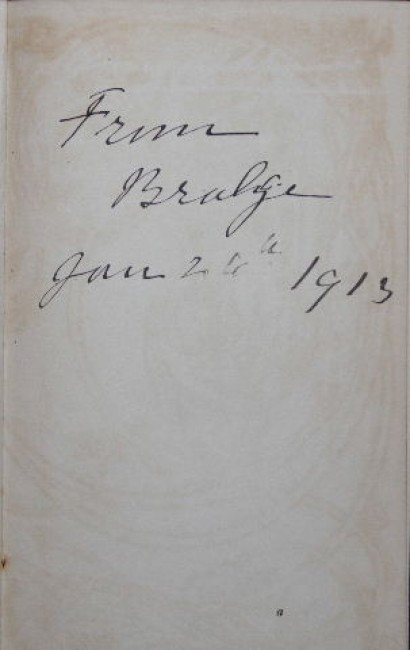 From
Bralge
Jan 26th 1913
a